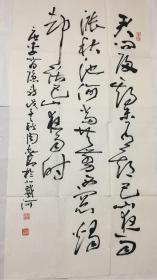 君问归期未有期巴山夜雨
涨秋池何当共剪西窗烛
却话巴山夜雨时
唐李商隐诗 於北戴河